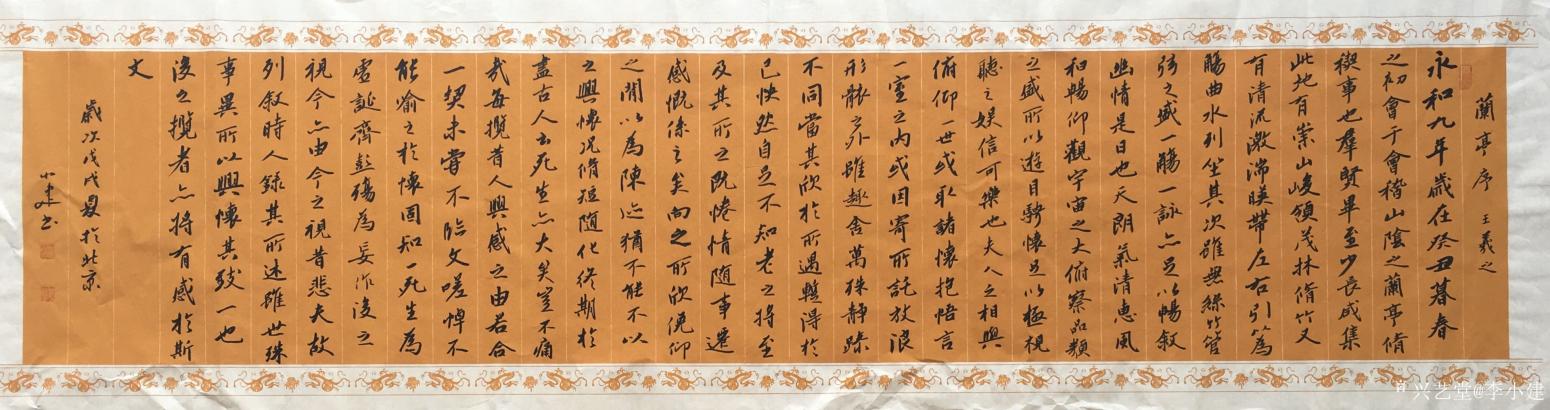 蘭亭序 王羲之
永和九年歲在癸丑暮春
之初會于會稽山陰之蘭亭脩
禊事也群賢畢至少長咸集
此地有崇山峻領茂林脩竹又
有清流激湍暎帶左右引以為
觴曲水列坐其次雖無絲竹管
弦之盛一觴一詠亦足以暢敘
幽情是日也天朗氣清惠風
和暢仰觀宇宙之大俯察品類
之盛所以遊目騁懷足以極視
聽之娛信可樂也夫人之相與
俯仰一世或取諸懷抱悟言
一室之內或因寄所託放浪
形骸之外雖趣舍萬殊靜躁
不同當其欣於所遇暫得於
己怏然自足不知老之將至
及其所之既惓情隨事遷
感慨係之矣向之所欣俛仰
之閒以為陳迹猶不能不以
之興懷況脩短隨化終期於
盡古人云死生亦大矣豈不痛
哉每攬昔人興感之由若合
一契未嘗不臨文嗟悼不
能喻之於懷固知一死生為
虛誕齊彭殤為妄作後之
視今亦由今之視昔悲夫故
列敘時人錄其所述雖世殊
事異所以興懷其致一也
後之攬者亦將有感於斯
文
歲次戊戌夏於北京
小建書
兴艺堂@李小建